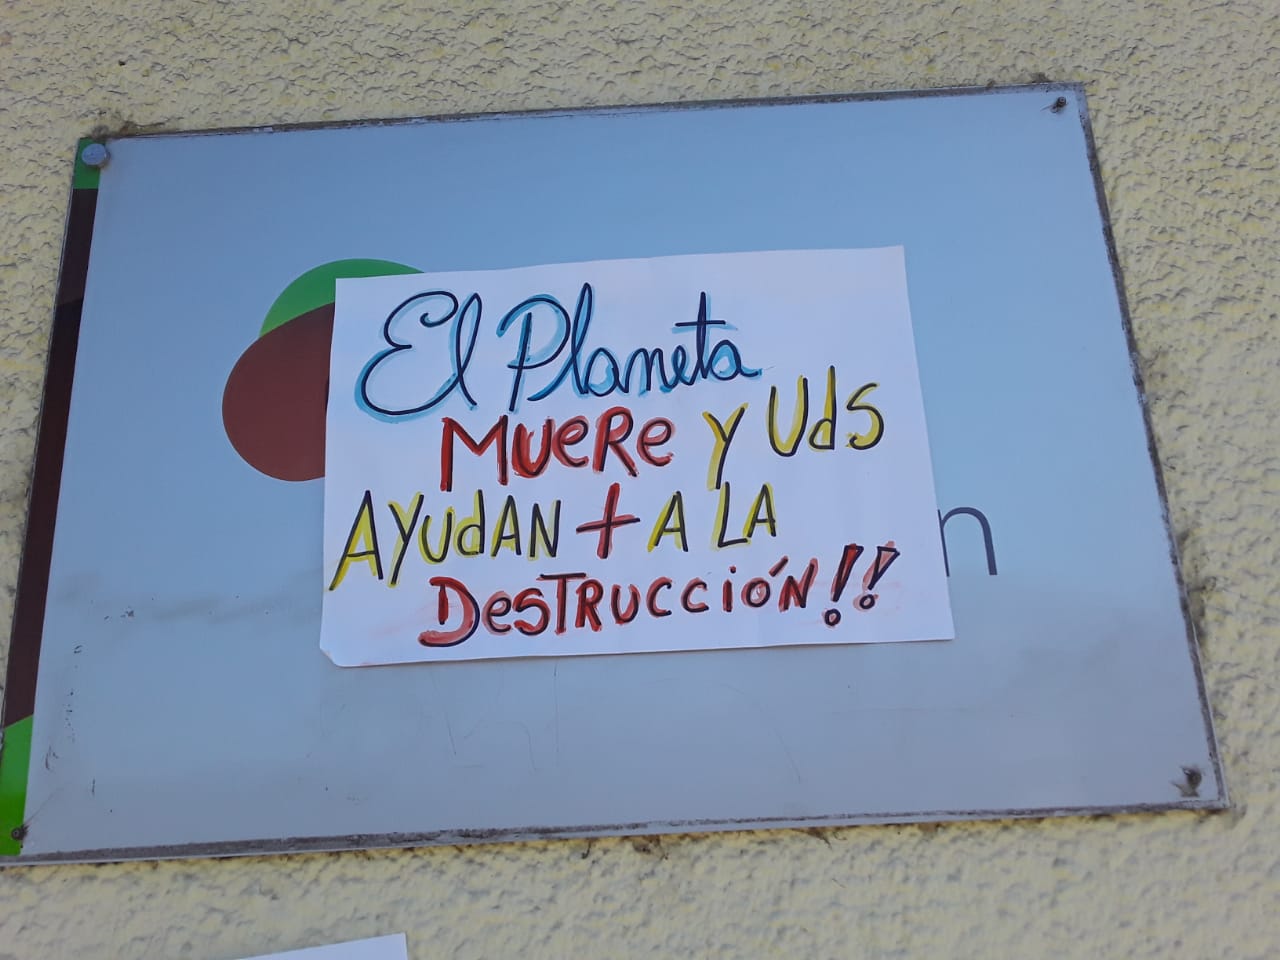 El Planeta
MUeRe y Uds
AyUdAN + A LA
DesTRUCCióN!!
n